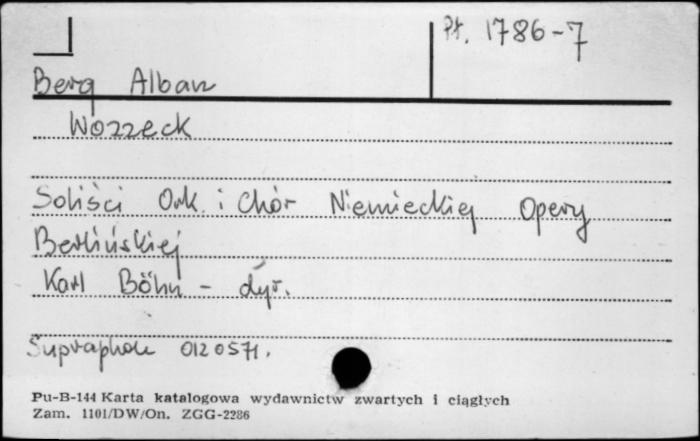 Pt. 1786-7
Berg Alban
Wozzeck
Soliści Ork. i Chór Niemieckiej Opery
Berlińskiej
Karl Böhm - dyr.
Supraphon 0120571.
Pu-B-144 Karta katalogowa wydawnictw zwartych i ciągłych
Zam. 1101/DW/On. ZGG-2286